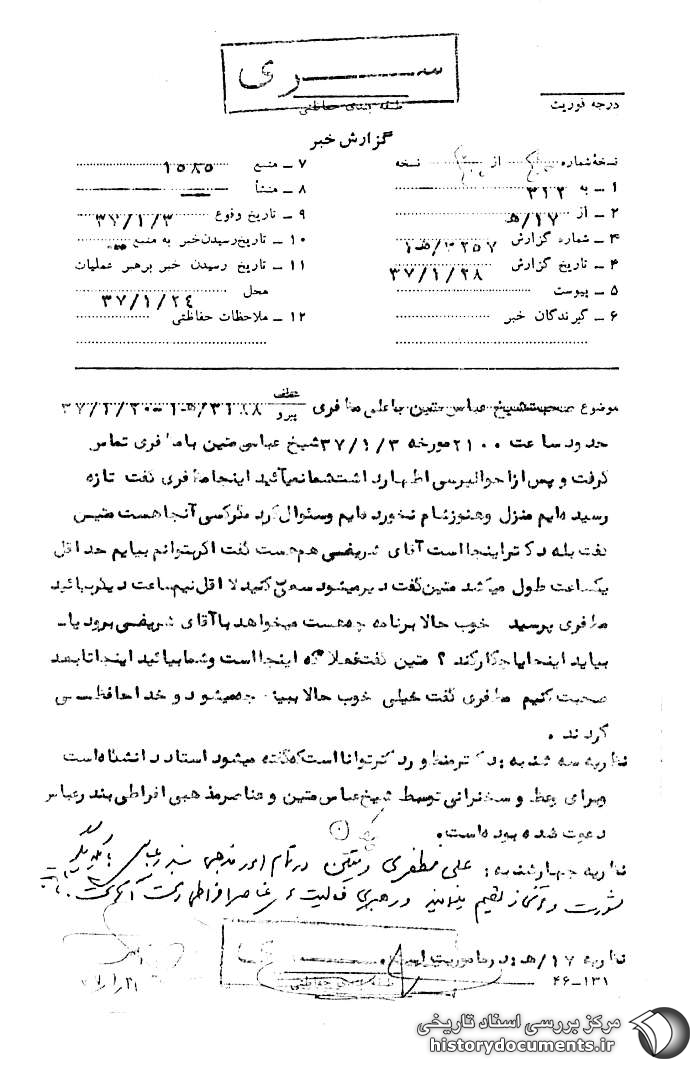 ســری
طبقه بندی حفاظتی
درجه فوریت
گزارش خبر
نسخهٔ شماره از نسخه
۱ ــ به ۳۱۲
۲ ــ از ۱۷/ه
۴ ــ شماره گزارش
۴ ــ تاریخ گزارش ۳۷/۱/۲۸
۵ ــ پیوست
۶ ــ گیرندگان خبر
۷ ــ منبع ۱۵۸۵
۸ ــ منشأ
۹ ــ تاریخ وقوع ۳۷/۱/۳
۱۰ ــ تاریخ رسیدن خبر به منبع
۱۱ ــ تاریخ رسیدن خبر برهبر عملیات
محل ۳۷/۱/۲٤
۱۲ ــ ملاحظات حفاظتی
موضوع صحبت شیخ عباس متین با علی مظفری عطف پیرو
حدود ساعت ۲۱۰۰ مورخه ۳۷/۱/۳ شیخ عباس متین با مظفری تماس
گرفت و پس از احوالپرسی اظهار داشت شما نمیآئید اینجا مظفری گفت تازه
رسیده ایم منزل و هنوز شام نخورده ایم وسئوال کرد مگر کسی آنجا هست متین
گفت بله دکتر اینجا است آقای شریفی هم هست گفت اگر بتوانم بیایم حداقل
یکساعت طول میکشد متین گفت دیر میشود سعی کنید لااقل نیمساعت دیگر بیائید
مظفری پرسید خوب حالا برنامه چه هست میخواهد با آقای شریفی برود یا ــ
بیاید اینجا یا چکار کند ؟ متین گفت فعلا که اینجا است و شما بیائید اینجا تا بعد
صحبت کنیم مظفری گفت خیلی خوب حالا ببینم چه میشود و خداحافظی
کردند .
نظریه سه شنبه : دکتر منظور دکتر توانا است که گفته میشود استاد دانشگاه است
و برای وعظ و سخنرانی توسط شیخ عباس متین و عناصر مذهبی افراطی بندرعباس
دعوت شده بوده است .
نظریه چهارشنبه : علی مظفری و متین در تمام امور مذهبی بندرعباس با یکدیگر
مشورت و
نظریه ۱۷/ه :
طبقه بندی حفاظتی
۴۶ــ۱۳۱
مرکز بررسی اسناد تاریخی
historydocuments.ir